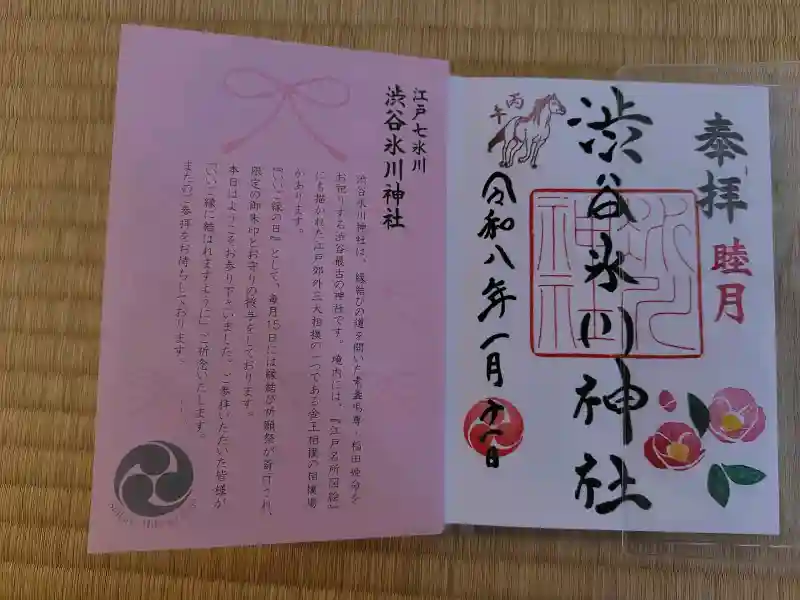 奉拝
睦月
渋谷氷川神社
氷川
神社
丙
午
令和八年一月十一日
江戸七氷川
渋谷氷川神社
渋谷氷川神社は、縁結びの道を開いた素盞嗚尊・稲田姫命を
お祀りする渋谷最古の神社です。境内には、『江戸名所図絵』
にも描かれた江戸郊外三大相撲の一つである金王相撲の相撲場
があります。
『いいご縁の日』として、毎月15日には縁結び祈願祭が斎行され、
限定の御朱印とお守りの授与をしております。
本日はようこそお参り下さいました。ご参拝いただいた皆様が
「いいご縁に結ばれますように」ご祈念いたします。
またのご参拝をお待ちしております。